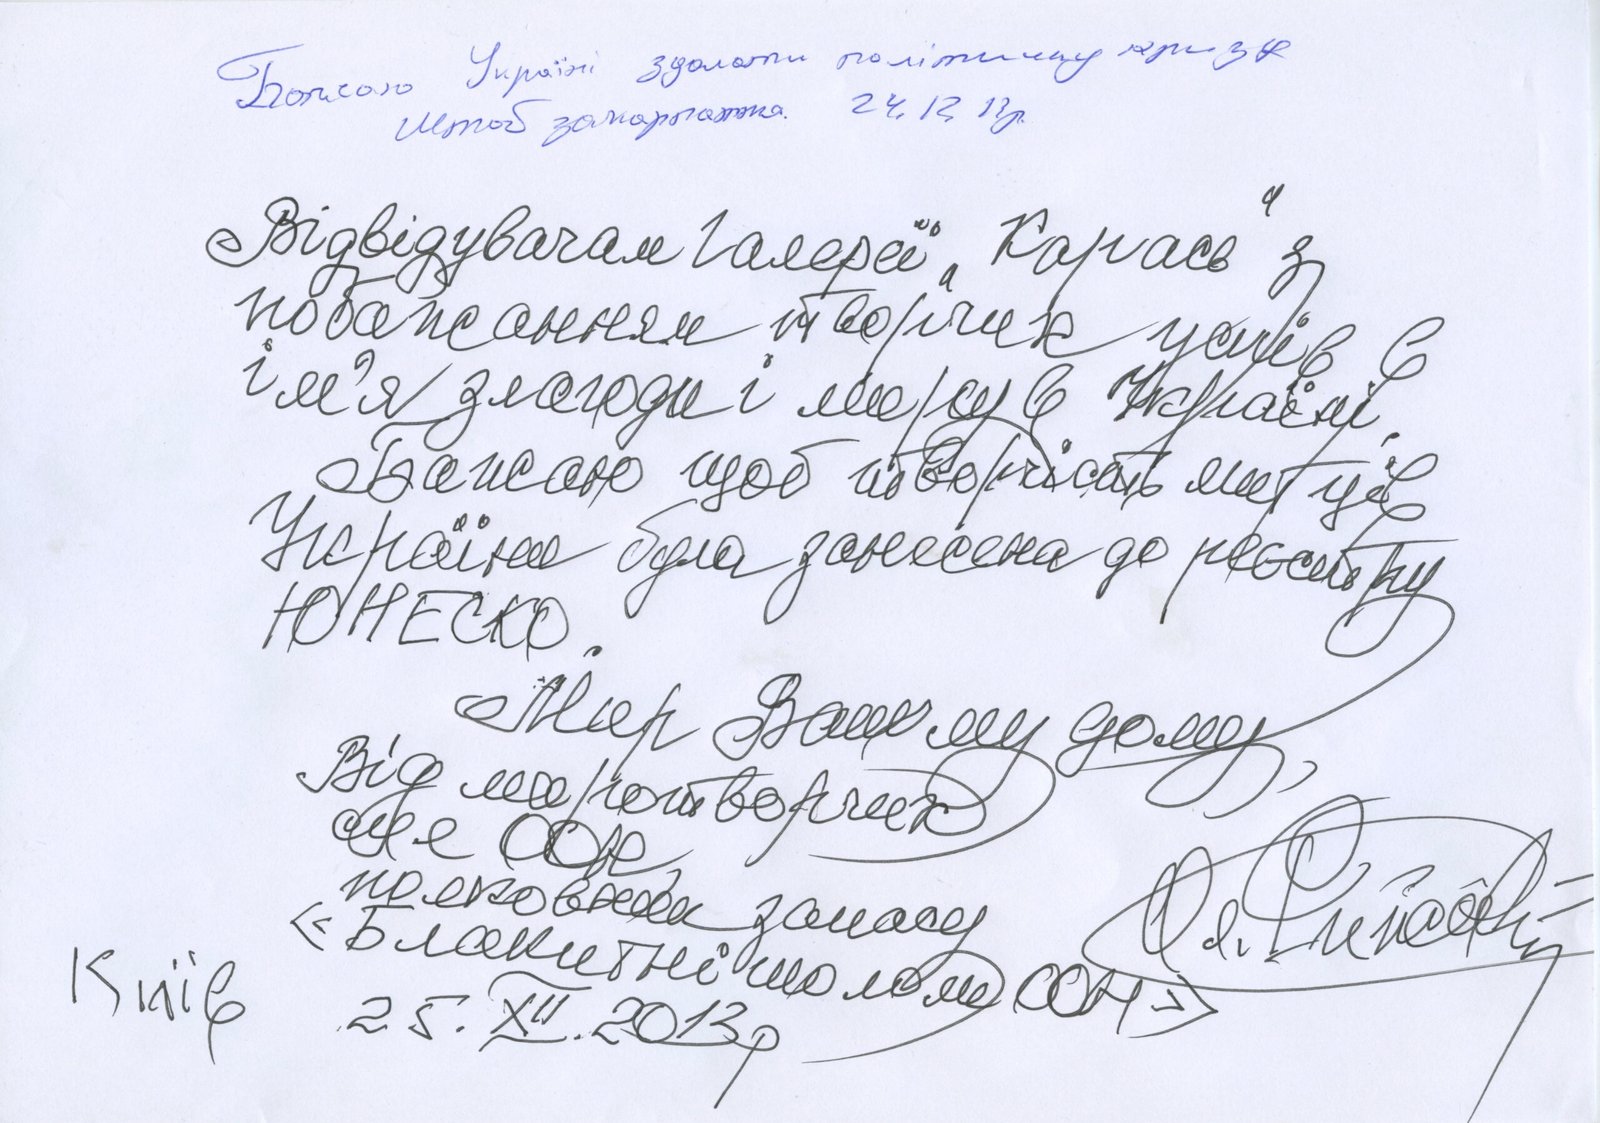 Бажаю Україні здолати політичну кризу
Штаб закарпаття. 24.12.13р.
Відвідувачам Галереї „Карась" з
побажанням творчих успіхів в
ім'я злагоди і миру в Україні.
Бажаю щоб творчість митців
України була занесена до реєстру
ЮНЕСКО.
Мир Вашому дому,
Від миротворчих
сил ООН,
полковник запасу
«Блакитні шоломи ООН»
Київ
25.XII.2013р